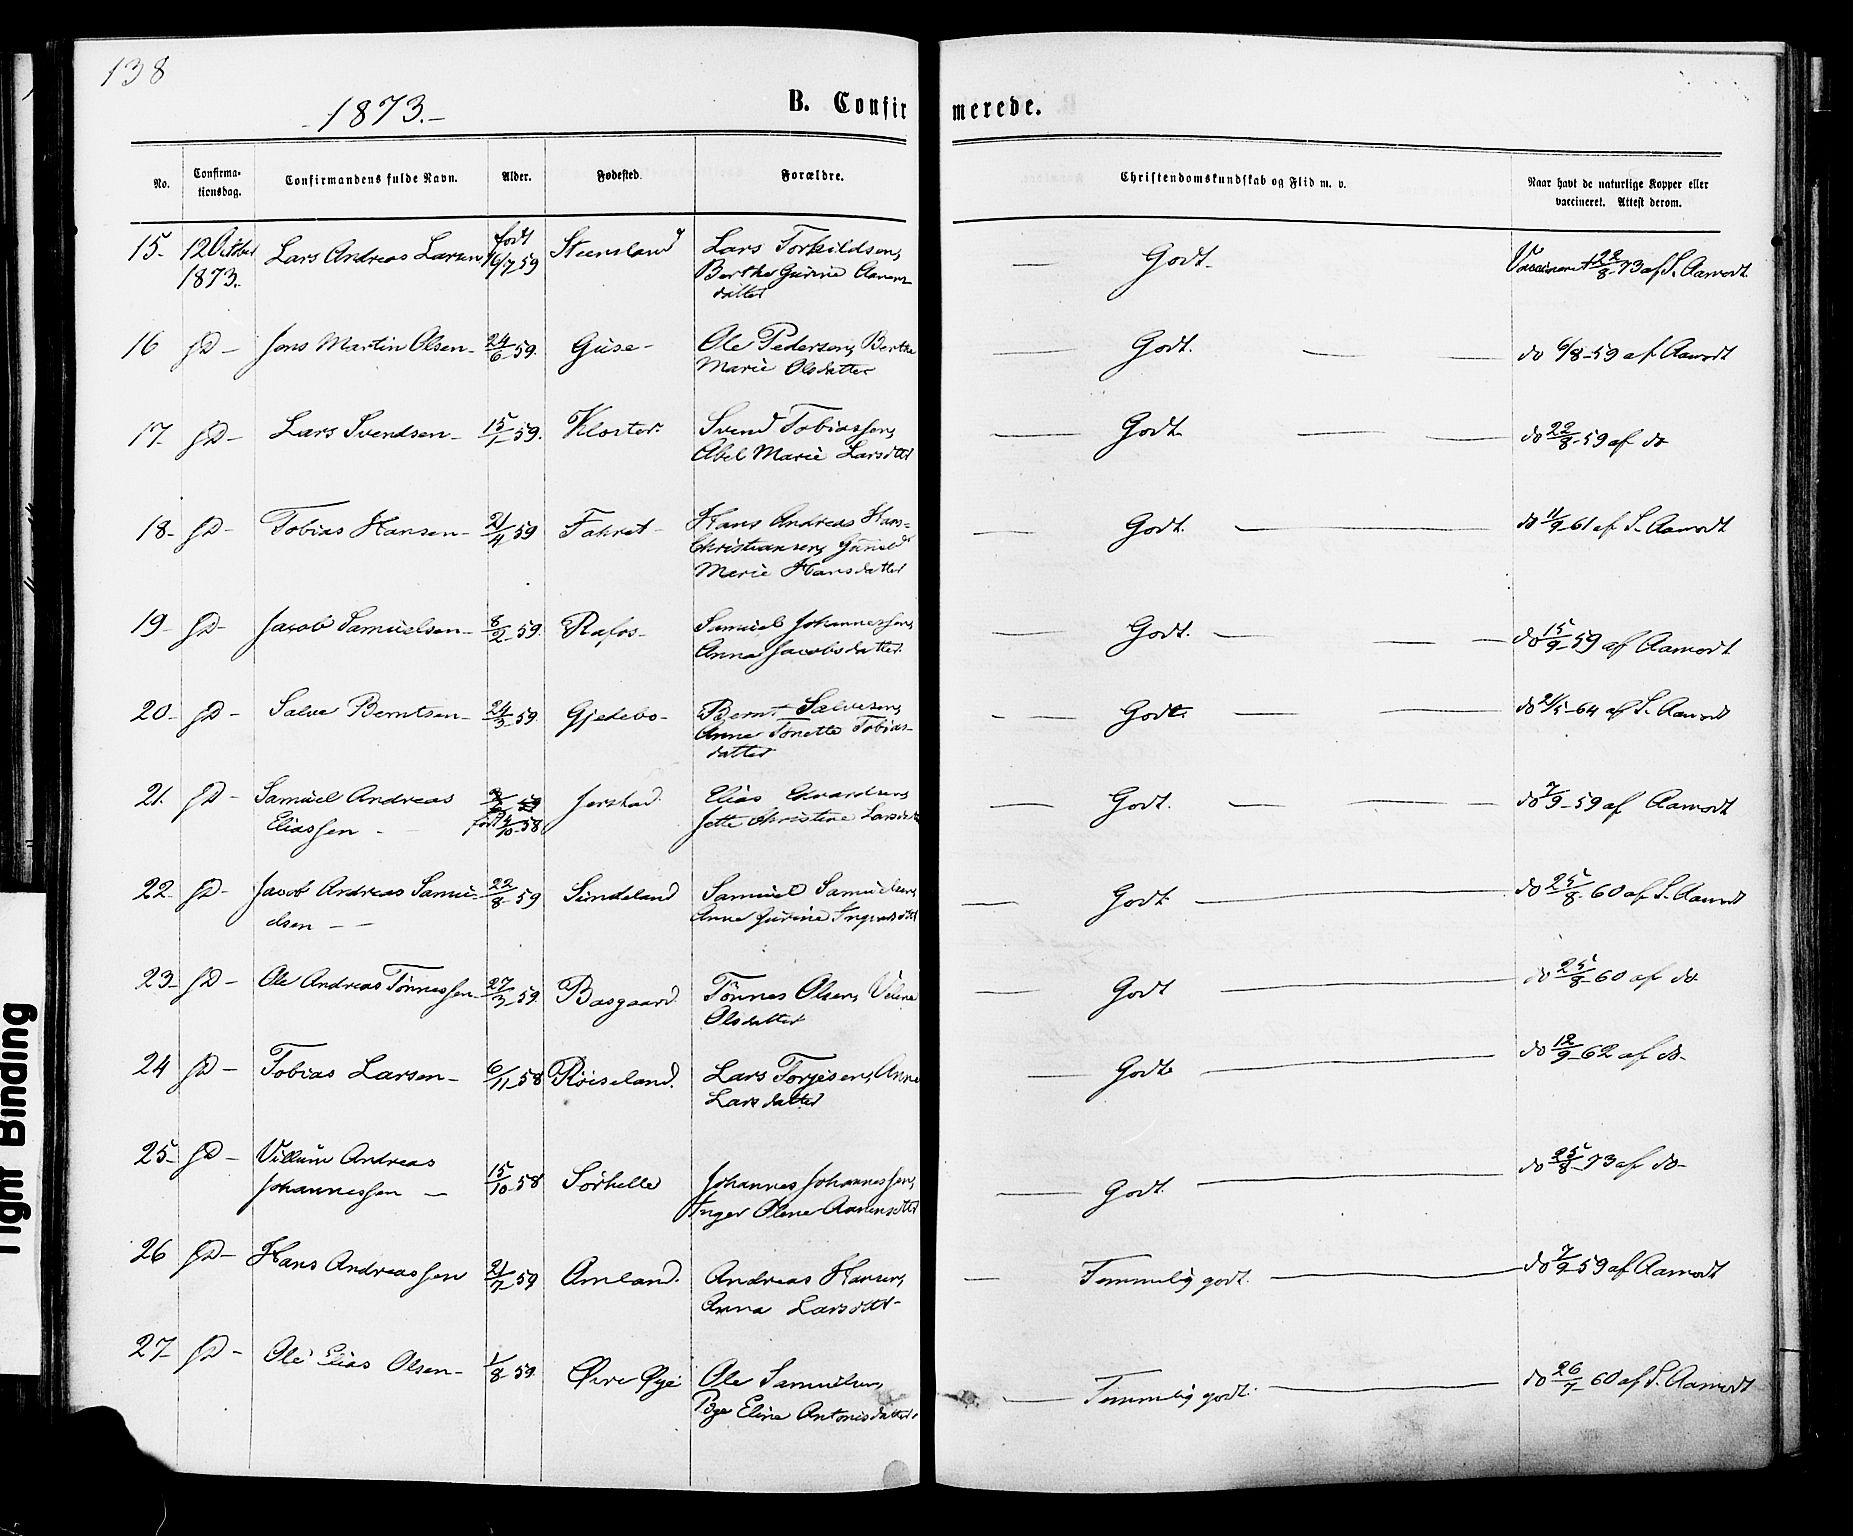 138
- 1873. -
B. Confirmerede.
No. Confirmationsdag. Confirmandens fulde Navn. Alder. Fødested. Forældre. Christendomskundskab og Flid m. v. Naar havt de naturlige Kopper eller vaccineret. Attest derom.
15. 12 October Lars Andreas Larsen født Steensland Lars Torkildsen, Godt. Vaccineret 22/8 73 af S. Aamodt.
1873. 16/7 59 Berthe Gurine Aanens
datter
16 D - Jens Martin Olsen - 24/6 59. Guse - Ole Pedersen, Berthe Godt. do 6/8 - 59 af Aamodt
Marie Olsdatter
17 D - Lars Svendsen - 15/1 59. Kloster. Svend Tobiassen, Godt. do 22/8 - 59 af do
Abel Marie Larsdttr
18 - D - Tobias Hansen - 21/4 59 Fahret - Hans Andreas Hans- Godt. do 11/9 - 61 af S. Aamodt
Christiansen, Gunild
Marie Hansdatter
19 - D - Jacob Samuelsen - 8/2 - 59. Rafos - Samuel Johannessen, Godt. do 15/9 - 59 af Aamodt.
Anna Jacobsdatter.
20 - D - Salve Berntsen - 24/3 - 59. Gjedebo - Bernt Salvesen, Godt. do 21/5 - 64 af S. Aamodt
Anne Tonette Tobias-
datter
21. D - Samuel Andreas Jerstad. Elias Edvardsen, Godt. do 7/9 - 59 af Aamodt
Eliassen - født /10 - 58 Jette Christine Larsdtr
22 - D - Jacob Andreas Samu- 22/8 59 Sindeland Samuel Samuelsen, Godt do 25/8 - 60 af S. Aamodt
elsen - - Anne Gurine Ingvarsdttr
23 - D - Ole Andreas Tønnessen - 27/3 - 59. Basgaard. Tønnes Olsen, Velene Godt do 25/8 - 60 af do
Olsdatter
24 D - Tobias Larsen - 6/11 - 58 Røiseland. Lars Torgesen, Anne Godt do 12/9 - 62 af do -
Larsdatter
25 - D - Villum Andreas 15/10 - 58 Sørhelle Johannes Johannessen, Godt. do 25/8 - 73 af do -
Johannessen - Inger Olene Aanensdttr
26 D - Hans Andreassen 21/7 - 59 Omland. Andreas Hansen, Temmelig godt. do 7/9 - 59 af Aamodt
Anna Larsdttr -
27 - D - Ole Elias Olsen - 1/8 - 59. Øvre Øye Ole Samuelsen, Temmelig godt. do 26/7 - 60 af S. Aamodt
Elene Antonisdatter.
Tight Binding